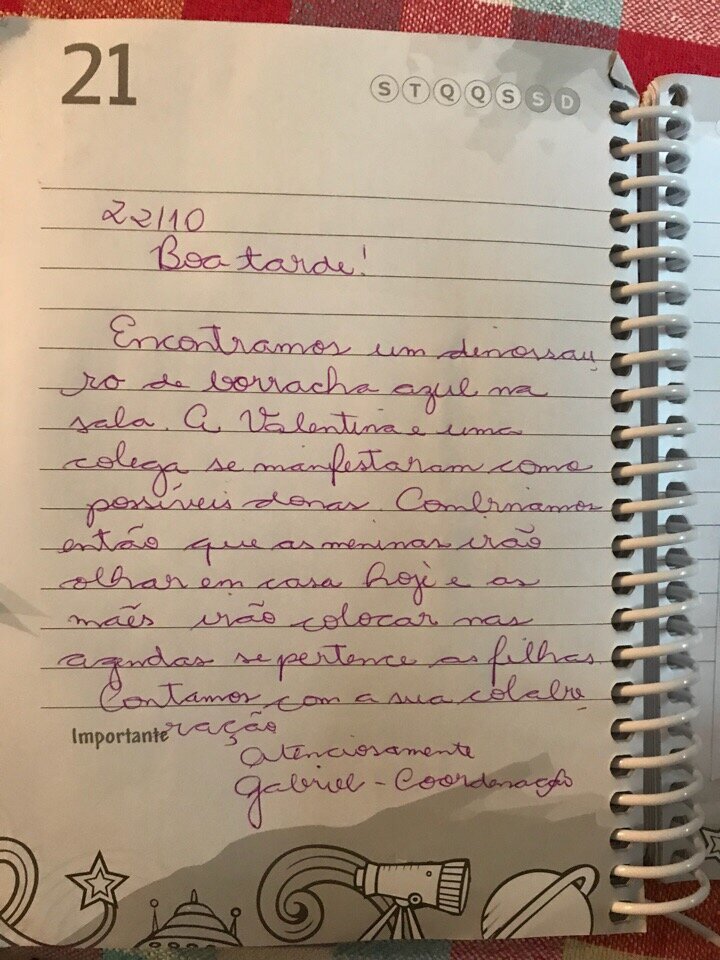 21
S T Q Q S S D
22/10
Boa tarde!
Encontramos um dinossau
ro de borracha azul na
sala. A Valentina e uma
colega se manifestaram como
possíveis donas. Combinamos
então que as meninas irão
olhar em casa hoje e as
mães irão colocar nas
agendas se pertence as filhas
Contamos com a sua colabo
ração
Importante
Atenciosamente
Gabriel - Coordenação